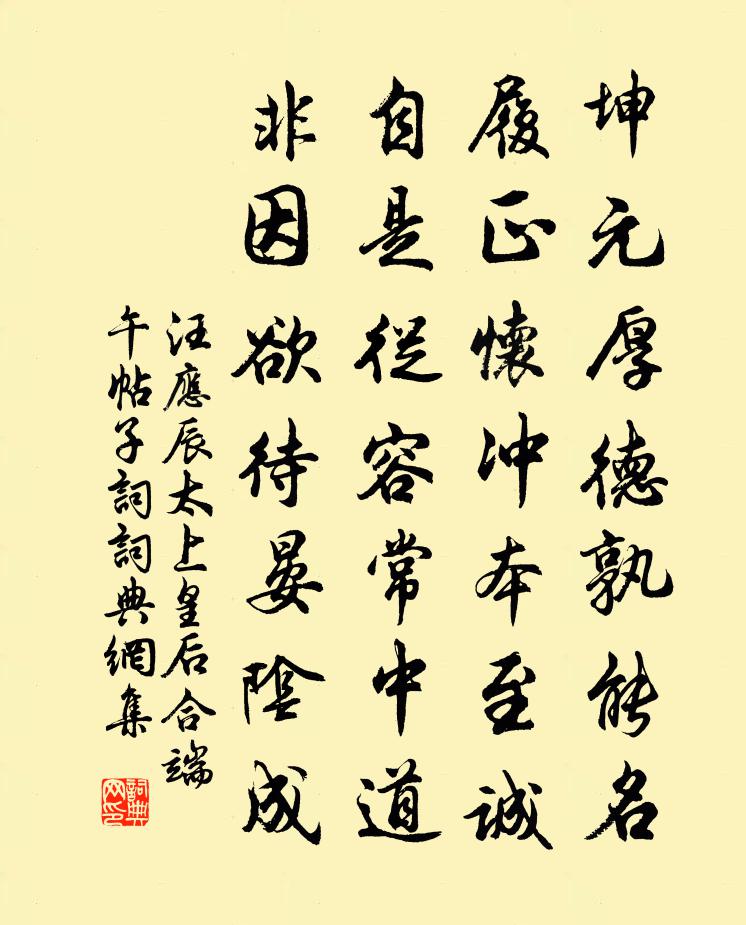 坤元厚德孰能名
履正懷冲本至誠
自是從容常中道
非因欲待晏陰成
汪應辰太上皇后合端
午帖子詞詞典網集
詞典
网印